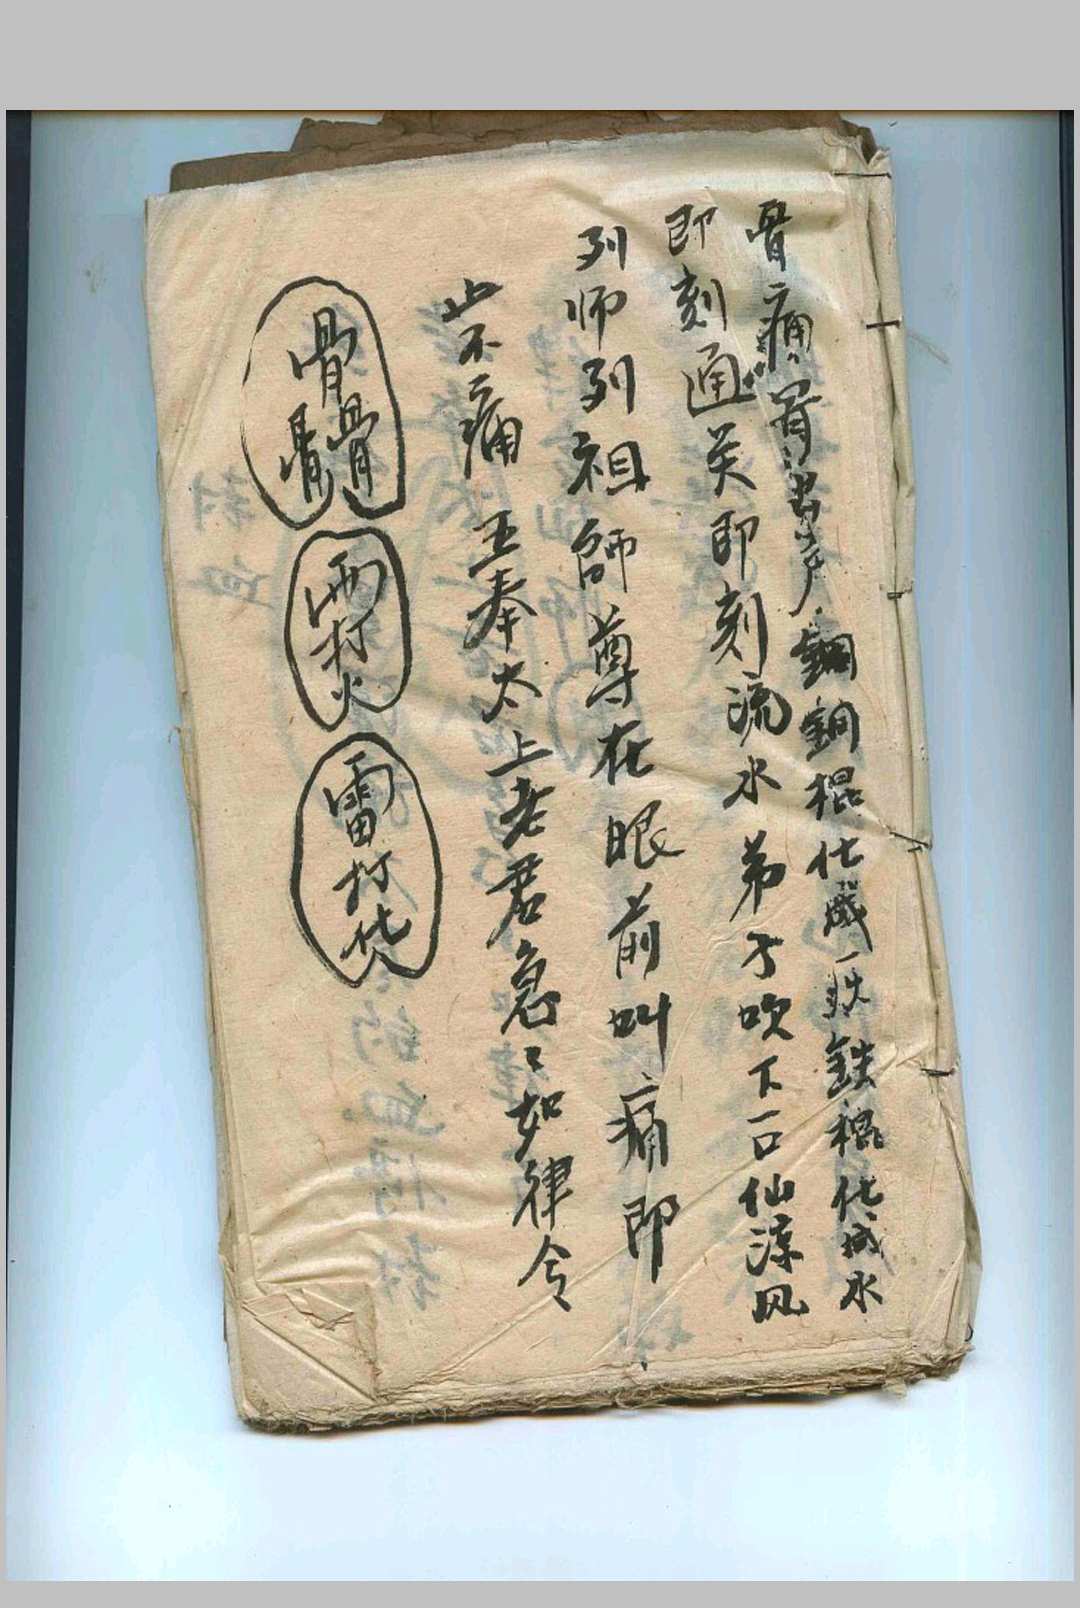 骨痛骨出声銅銅棍化成一鉄鉄棍化成水
即刻通关即刻流水弟子吹下一口仙凉风
列师列祖師尊在眼前叫痛即
止不痛 五奉太上老君急〻如律令
骨骨骨
雨打火
雷打化